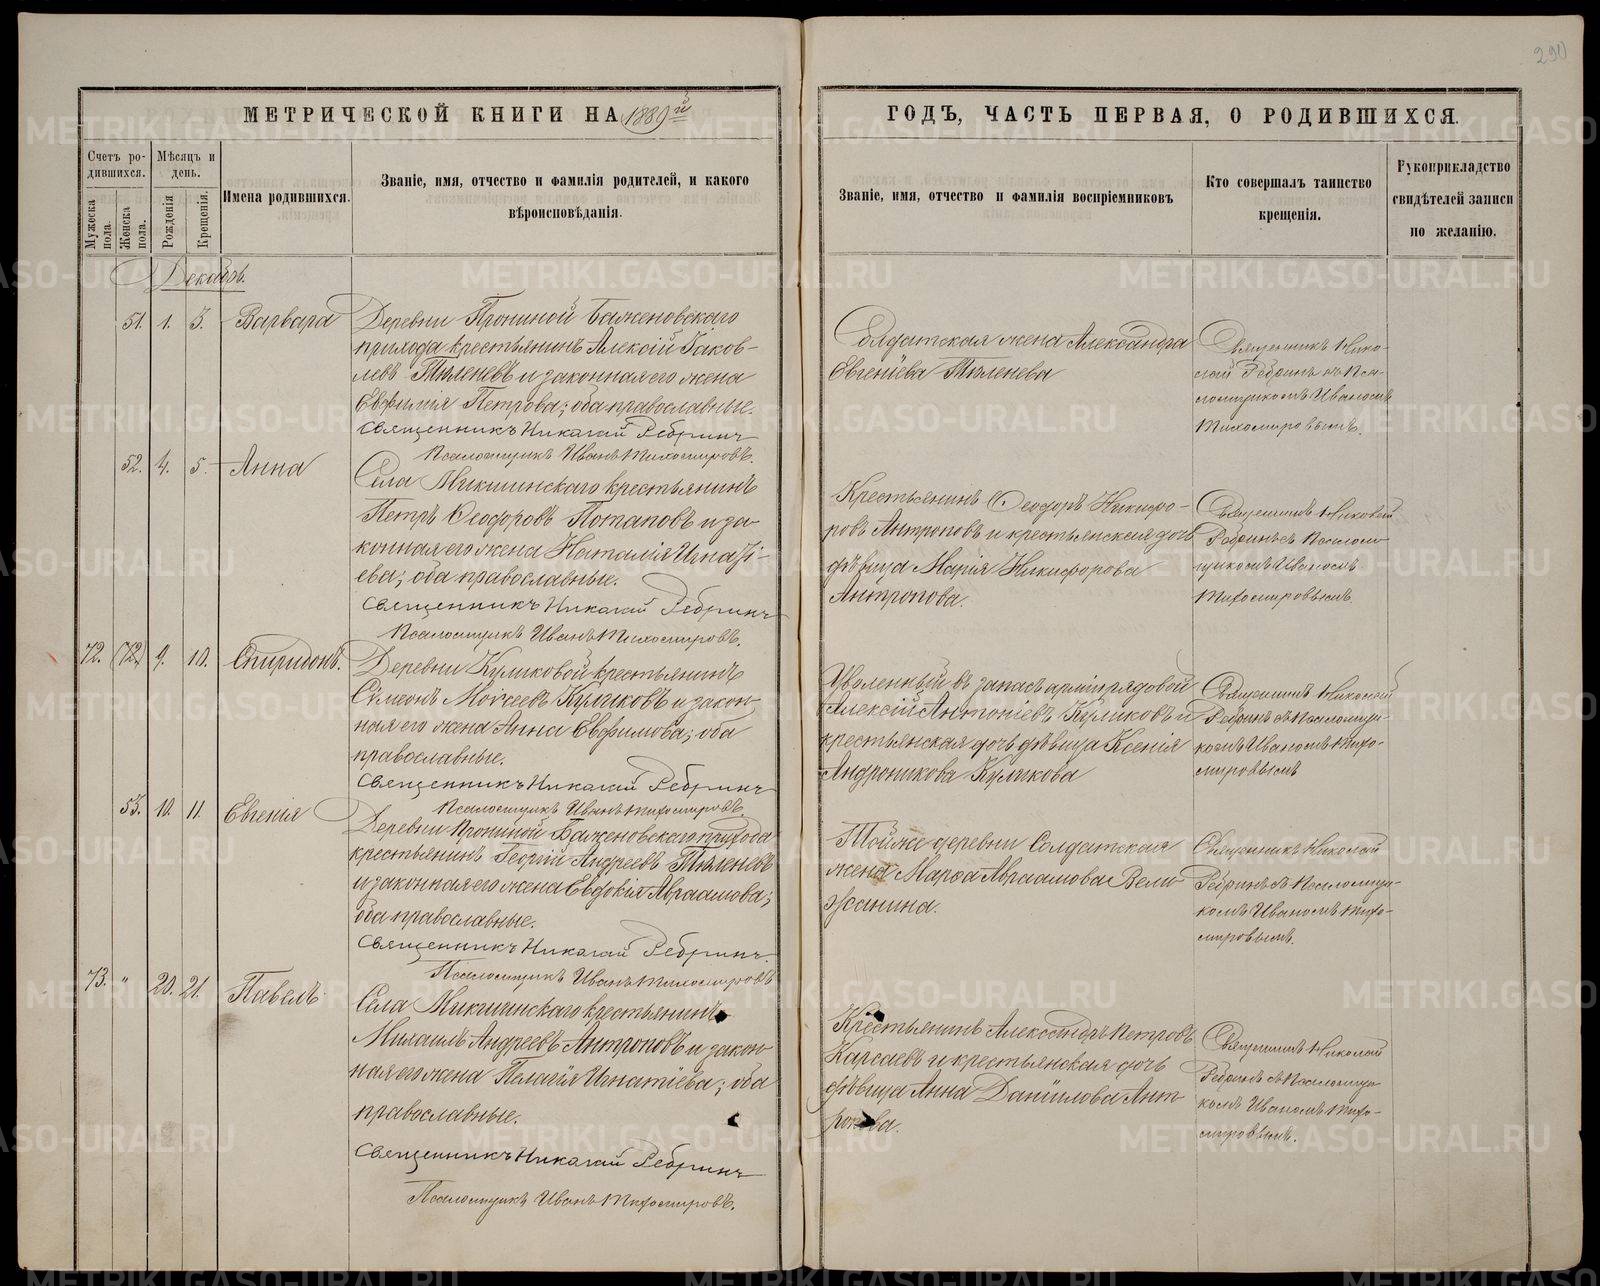 290
МЕТРИЧЕСКОЙ КНИГИ НА 1889й
ГОДЪ, ЧАСТЬ ПЕРВАЯ, О РОДИВШИХСЯ.
Счетъ ро-
дившихся.
Мѣсяцъ и
день.
Мужеска
пола.
Женска
пола.
Рожденія
Крещенія.
Имена родившихся.
Званіе, имя, отчество и фамилія родителей, и какого
вѣроисповѣданія.
Званіе, имя, отчество и фамилія воспріемниковъ
Кто совершалъ таинство
крещенія.
Рукоприкладство
свидѣтелей записи
по желанію.
Декабрь.
51. 1. 3. Варвара
Деревни Прониной Баженовскаго
прихода крестьянинъ Алексій Іаков-
левъ Тюленевъ и законная его жена
Евфимія Петрова; оба православные.
Священникъ Николай Ребринъ
Псаломщикъ Иванъ Тихомировъ.
Солдатская жена Александра
Евгеніева Тюленева
Священникъ Нико-
лай Ребринъ съ Пса-
ломщикомъ Иваномъ
Тихомировымъ.
52. 4. 5. Анна
Села Микшинскаго крестьянинъ
Петръ Ѳеодоровъ Потаповъ и за-
конная его жена Наталія Игнаті-
ева; оба православные.
Священникъ Николай Ребринъ
Псаломщикъ Иванъ Тихомировъ.
Крестьянинъ Ѳеодоръ Никифо-
ровъ Антроповъ и крестьянская дочь
дѣвица Марія Никифорова
Антропова.
Священникъ Николай
Ребринъ съ Псалом-
щикомъ Иваномъ
Тихомировымъ.
72. (72) 9. 10. Спиридонъ.
Деревни Куликовой крестьянинъ
Симеонъ Моѵсеевъ Куликовъ и закон-
ная его жена Анна Евфимова; оба
православные.
Священникъ Николай Ребринъ
Псаломщикъ Иванъ Тихомировъ.
Уволенный въ запасъ арміи рядовой
Алексій Антоніевъ Куликовъ и
крестьянская дочь дѣвица Ксенія
Андроникова Куликова
Священникъ Николай
Ребринъ съ Псаломщи-
комъ Иваномъ Тихо-
мировымъ
53. 10. 11. Евгенія
Деревни Прониной Баженовскаго прихода
крестьянинъ Георгій Андреевъ Тюленевъ
и законная его жена Евдокія Авраамова;
оба православные.
Священникъ Николай Ребринъ.
Псаломщикъ Иванъ Тихомировъ
Той же деревни Солдатская
жена Марѳа Авраамова Вели-
жанина.
Священникъ Николай
Ребринъ съ Псаломщи-
комъ Иваномъ Тихо-
мировымъ.
73. " 20. 21. Павелъ
Села Микшинскаго крестьянинъ
Михаилъ Андреевъ Антроповъ и закон-
ная его жена Пелагія Игнатіева; оба
православные.
Священникъ Николай Ребринъ
Псаломщикъ Иванъ Тихомировъ.
Крестьянинъ Александръ Петровъ
Карсаевъ и крестьянская дочь
дѣвица Анна Даніилова Ант-
ропова.
Священникъ Николай
Ребринъ съ Псаломщи-
комъ Иваномъ Тихо-
мировымъ.
METRIKI.GASO-URAL.RU